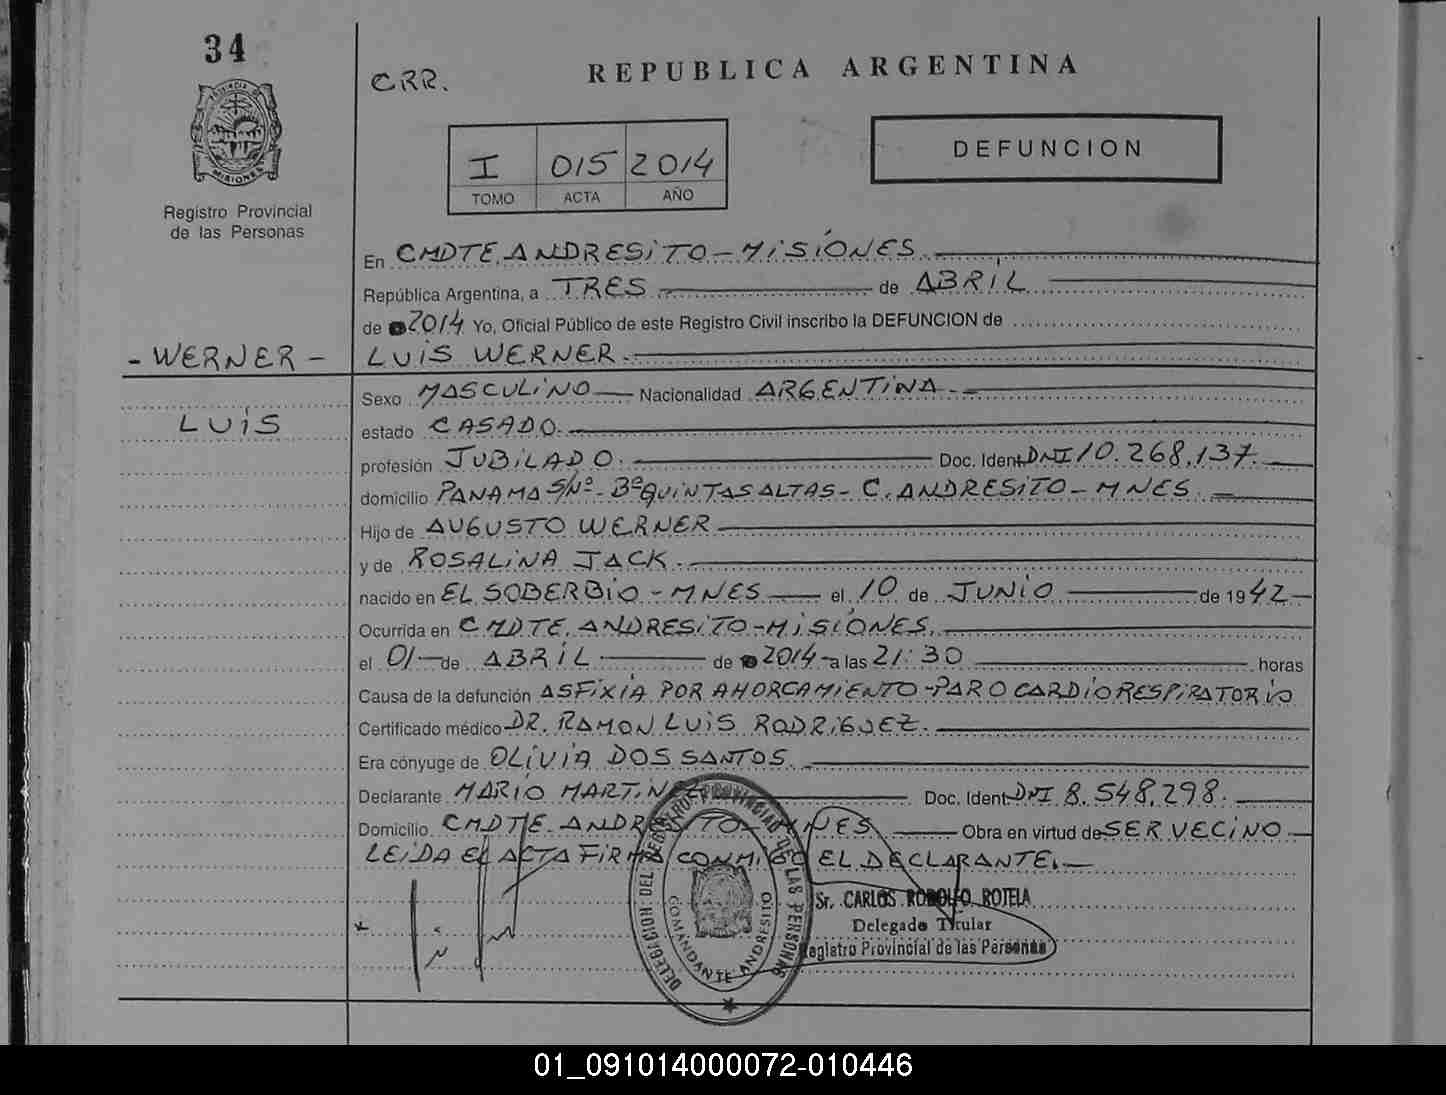 34
PROVINCIA DE
MISIONES
Registro Provincial
de las Personas
CRR.
REPUBLICA ARGENTINA
I 015 2014
TOMO ACTA AÑO
DEFUNCION
En CMDTE. ANDRESITO - MISIONES
República Argentina, a TRES de ABRIL
de 2014 Yo, Oficial Público de este Registro Civil inscribo la DEFUNCION de
- WERNER - LUIS WERNER.
Sexo MASCULINO Nacionalidad ARGENTINA.
LUIS estado CASADO.
profesión JUBILADO. Doc. Ident. DNI 10.268.137.
domicilio PANAMA S/Nº - Bº QUINTAS ALTAS - C. ANDRESITO - MNES.
Hijo de AUGUSTO WERNER
y de ROSALINA JACK.
nacido en EL SOBERBIO - MNES el 10 de JUNIO de 1942
Ocurrida en CMDTE. ANDRESITO - MISIONES.
el 01 de ABRIL de 2014 a las 21:30 horas
Causa de la defunción ASFIXIA POR AHORCAMIENTO - PARO CARDIORESPIRATORIO
Certificado médico DR. RAMON LUIS RODRIGUEZ.
Era cónyuge de OLIVIA DOS SANTOS.
Declarante MARIO MARTINEZ Doc. Ident. DNI 8.548.298.
Domicilio CMDTE. ANDRESITO - MNES Obra en virtud de SER VECINO
LEIDA EL ACTA FIRMA CONMIGO EL DECLARANTE.
DELEGACION DEL REGISTRO PROVINCIAL DE LAS PERSONAS
COMANDANTE ANDRESITO
Sr. CARLOS RODOLFO ROTELA
Delegado Titular
Registro Provincial de las Personas
01_091014000072-010446